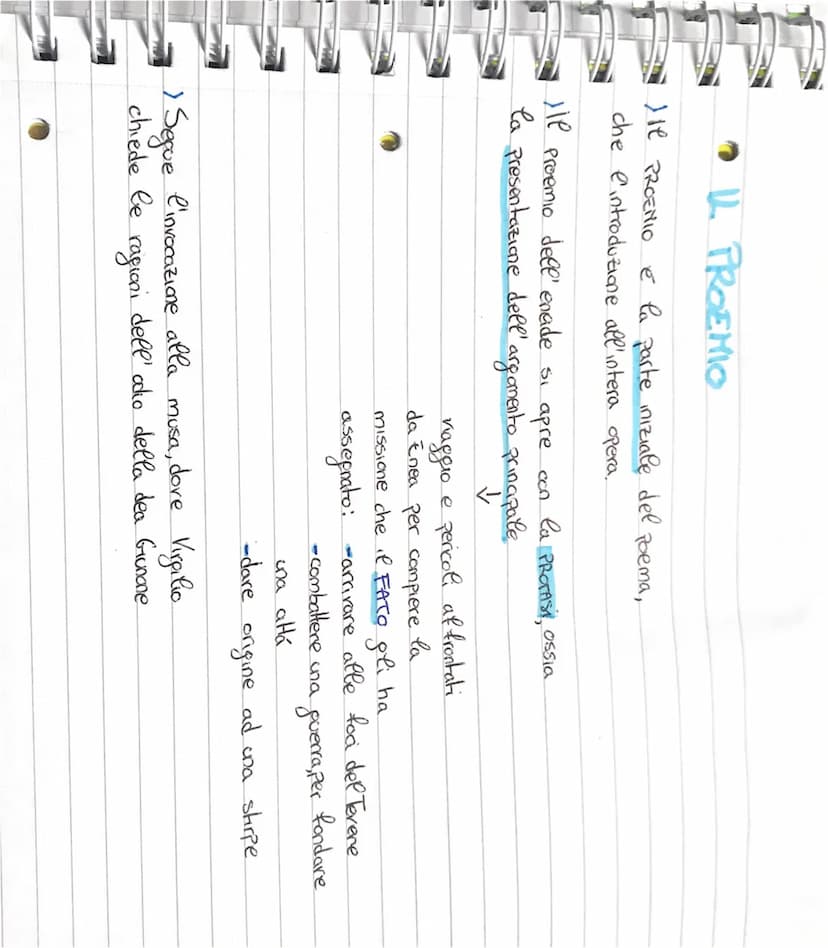 • IL PROEMIO
> Il PROEMIO è la parte iniziale del poema,
che l'introduzione all'intera opera.
> Il proemio dell'eneide si apre con la PROTASI, ossia
la presentazione dell'argomento principale
↓
viaggio e pericoli affrontati
da Enea per compiere la
missione che il FATO gli ha
assegnato: - arrivare alle foci del Tevere
- combattere una guerra, per fondare
una città
- dare origine ad una stirpe
> Segue l'invocazione alla musa, dove Virgilio
chiede le ragioni dell'odio della dea Giunone